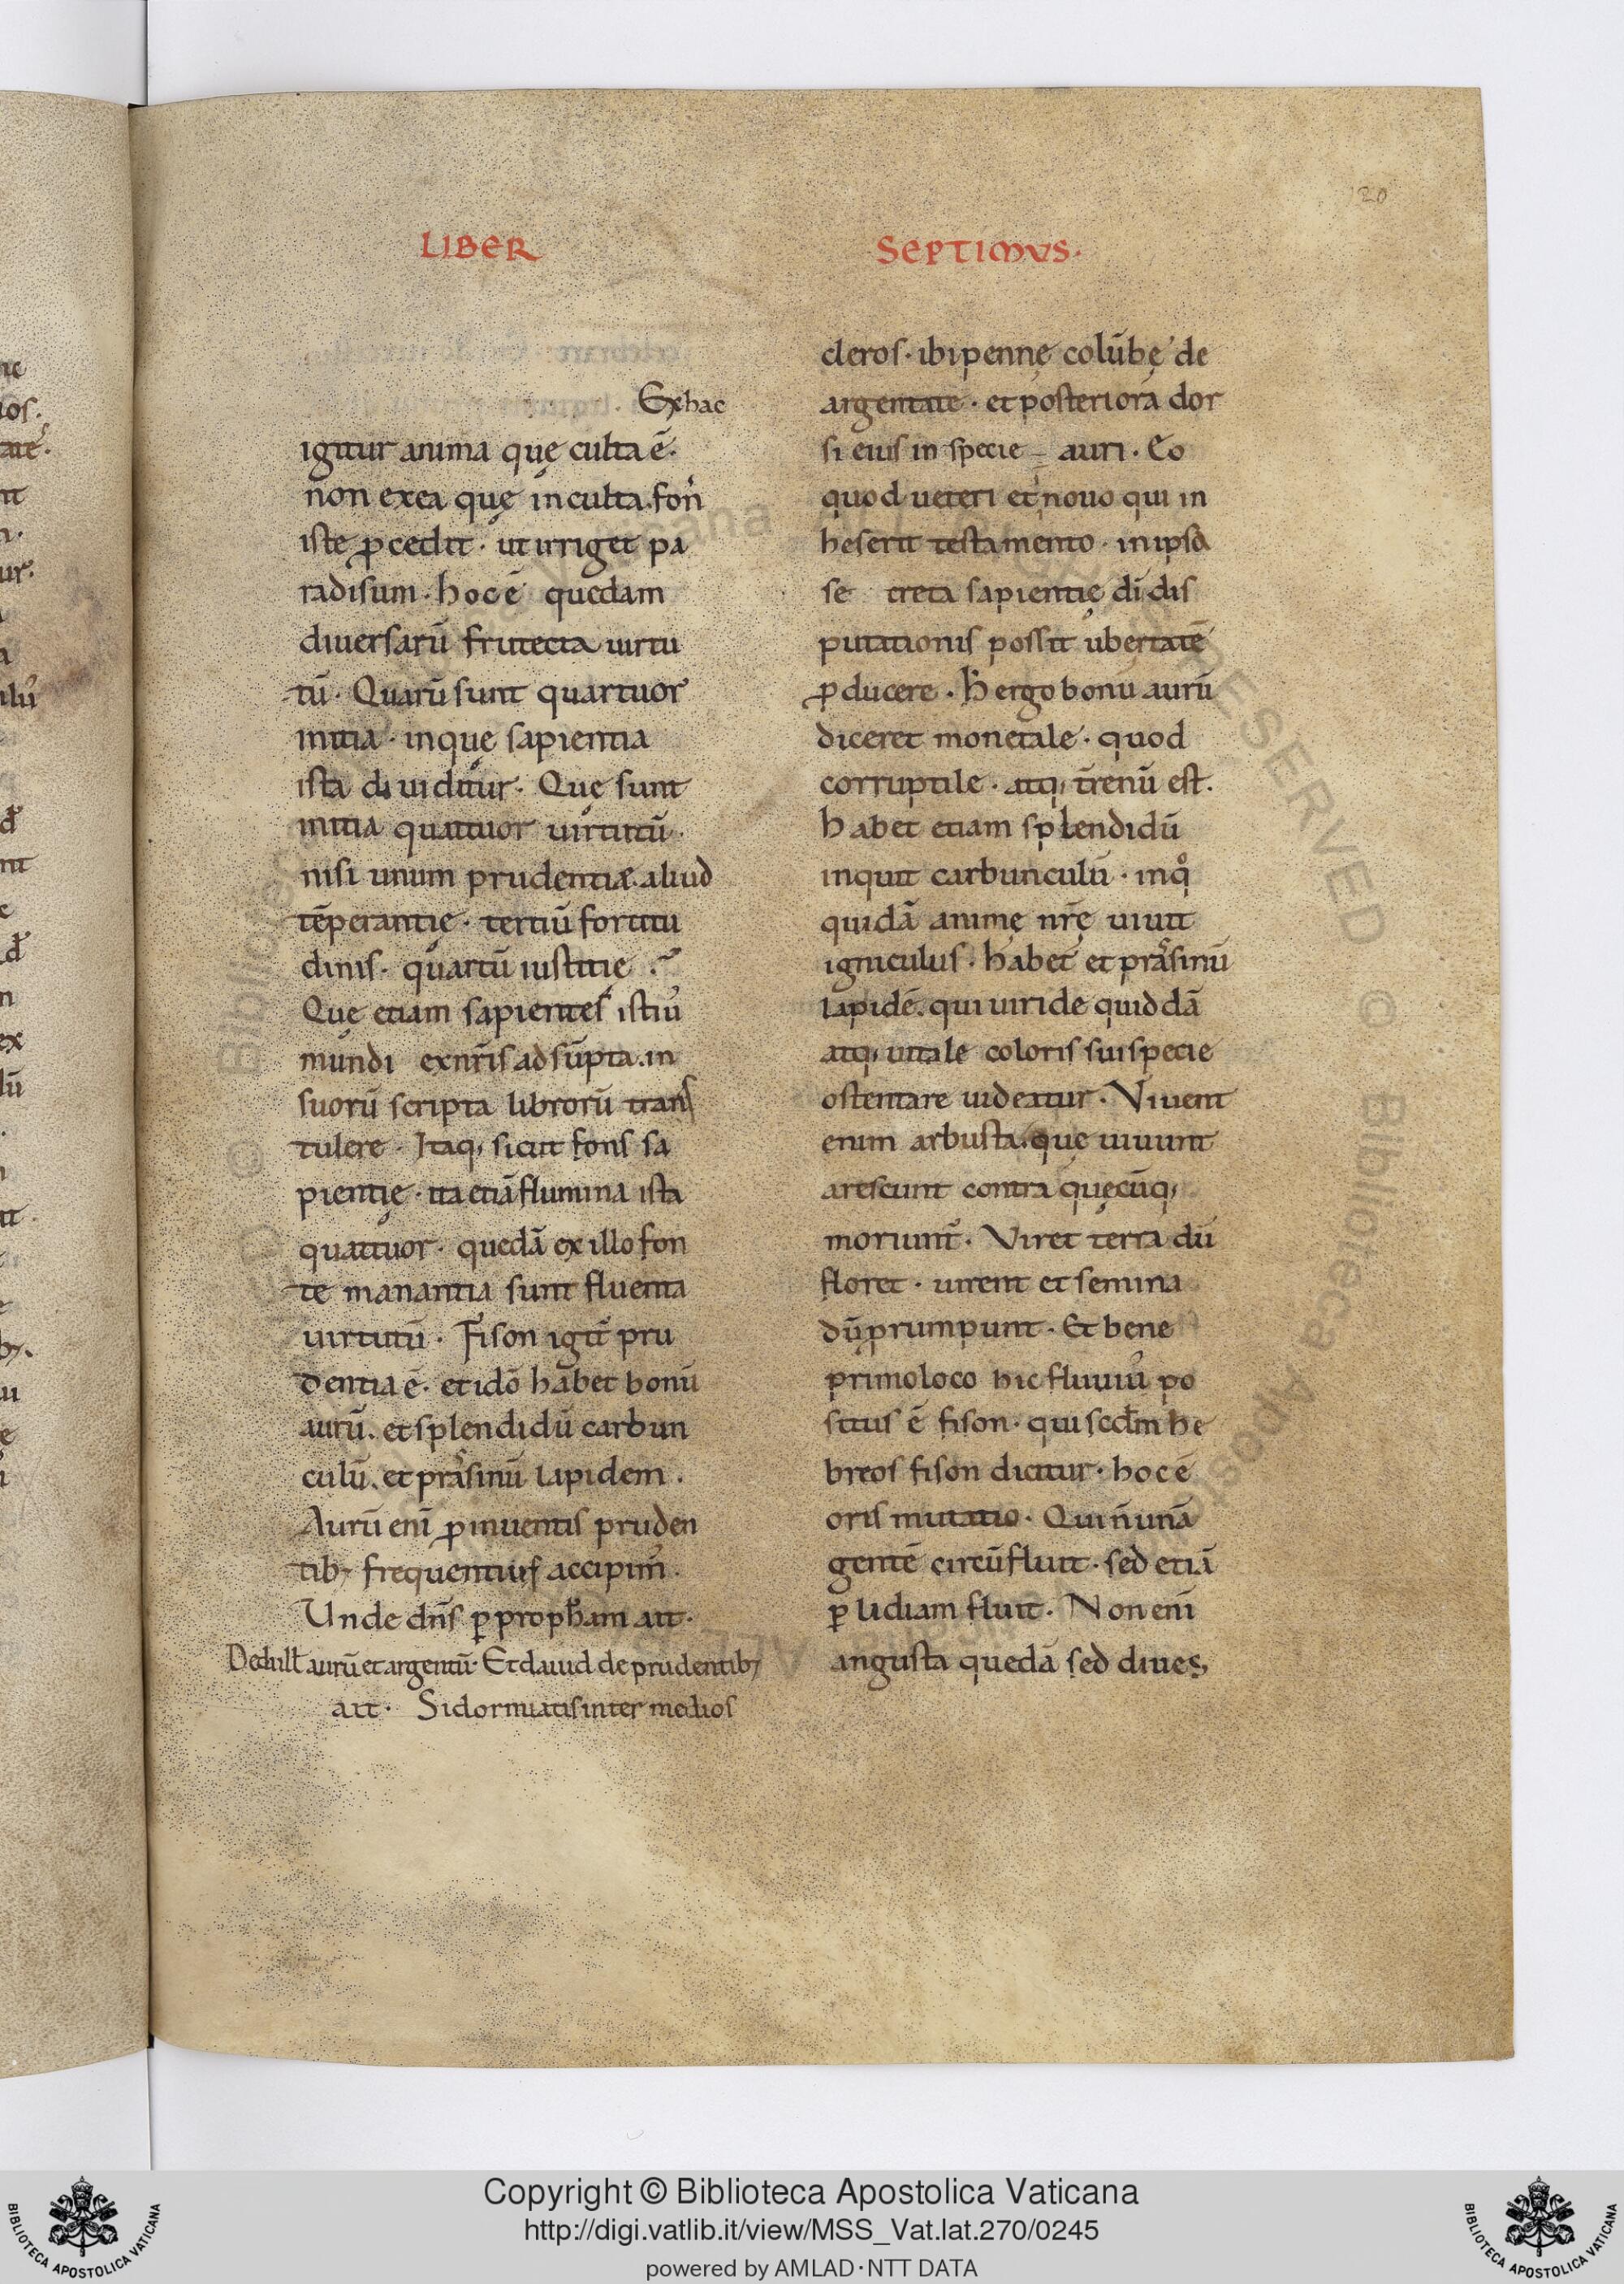 120
LIBER
Exhac
igitur anima quę culta ē·
non exea quę inculta. fonſ
iſte ꝓcedit· ut irriget pa
radiſum· hoc ē quędam
diuerſarū frutecta uirtu
tū· Quarū ſunt quattuor
initia· inquę ſapientia
iſta diuiditur· Quę ſunt
initia quattuor uirtutū·
niſi unum prudentiæ. aliud
tēperantię· tertiū fortitu
dinis· quartū iuſtitię ·~
Quę etiam ſapienteſ iſtiuꝰ
mundi exnr̄is adſūpta. in
ſuorū ſcripta librorū tranſ
tulere· Itaq; ſicut fonſ ſa
pientię· ita etiā flumina iſta
quattuor· quędā ex illo fon
te manantia ſunt fluenta
uirtutū· Fiſon igit̄ pru
dentia ē· et idō habet bonū
aurū. et ſplendidū carbun
culū. et praſinū lapidem.
Aurū enī ꝓ inuentis pruden
tib; frequentiuſ accipim̄ꝰ.
Unde dn̄ſ ꝑ proph̄am ait·
Dedull̄ aurū et argentū· Et dauid de prudentib;
ait· Si dormiatis inter medioſ
SEPTIMVS·
cleroſ· ibi pennę colūbę de
argentate· et poſteriora dor
ſi eiuſ in ſpecie auri· Eo
quod ueteri et nouo qui in
heſerit teſtamento· in ipſa
ſe creta ſapientię dī diſ
putationiſ poſſit ubertatē
ꝓducere· H̄ ergo bonū aurū
diceret monetale· quod
corruptile· atq; tr̄enū eſt.
habet etiam ſplendidū
inquit carbunculū· in qͦ
quidā animę nr̄ę uiuit
igniculuſ· habet et praſinū
lapidē. qui uiride quiddā
atq; uitale coloris ſui ſpecie
oſtentare uideatur· Virent
enim arbuſta. quę uiuunt
areſcunt contra quęcūq;
moriunt̄· Viret terra dū
floret· uirent et ſemina
dū ꝓrumpunt· Et bene
primo loco hic fluuiuꝰ po
ſituſ ē fiſon· qui ſcdm̄ he
breoſ fiſon dicitur· hoc ē
oriſ mutatio· Qui n̄ unā
gentē circūfluit· ſed etiā
ꝑ lidiam fluit· Non enī
anguſta quędā ſed diueſ,
Copyright © Biblioteca Apostolica Vaticana
http://digi.vatlib.it/view/MSS_Vat.lat.270/0245
powered by AMLAD·NTT DATA
BIBLIOTECA APOSTOLICA VATICANA
BIBLIOTECA APOSTOLICA VATICANA